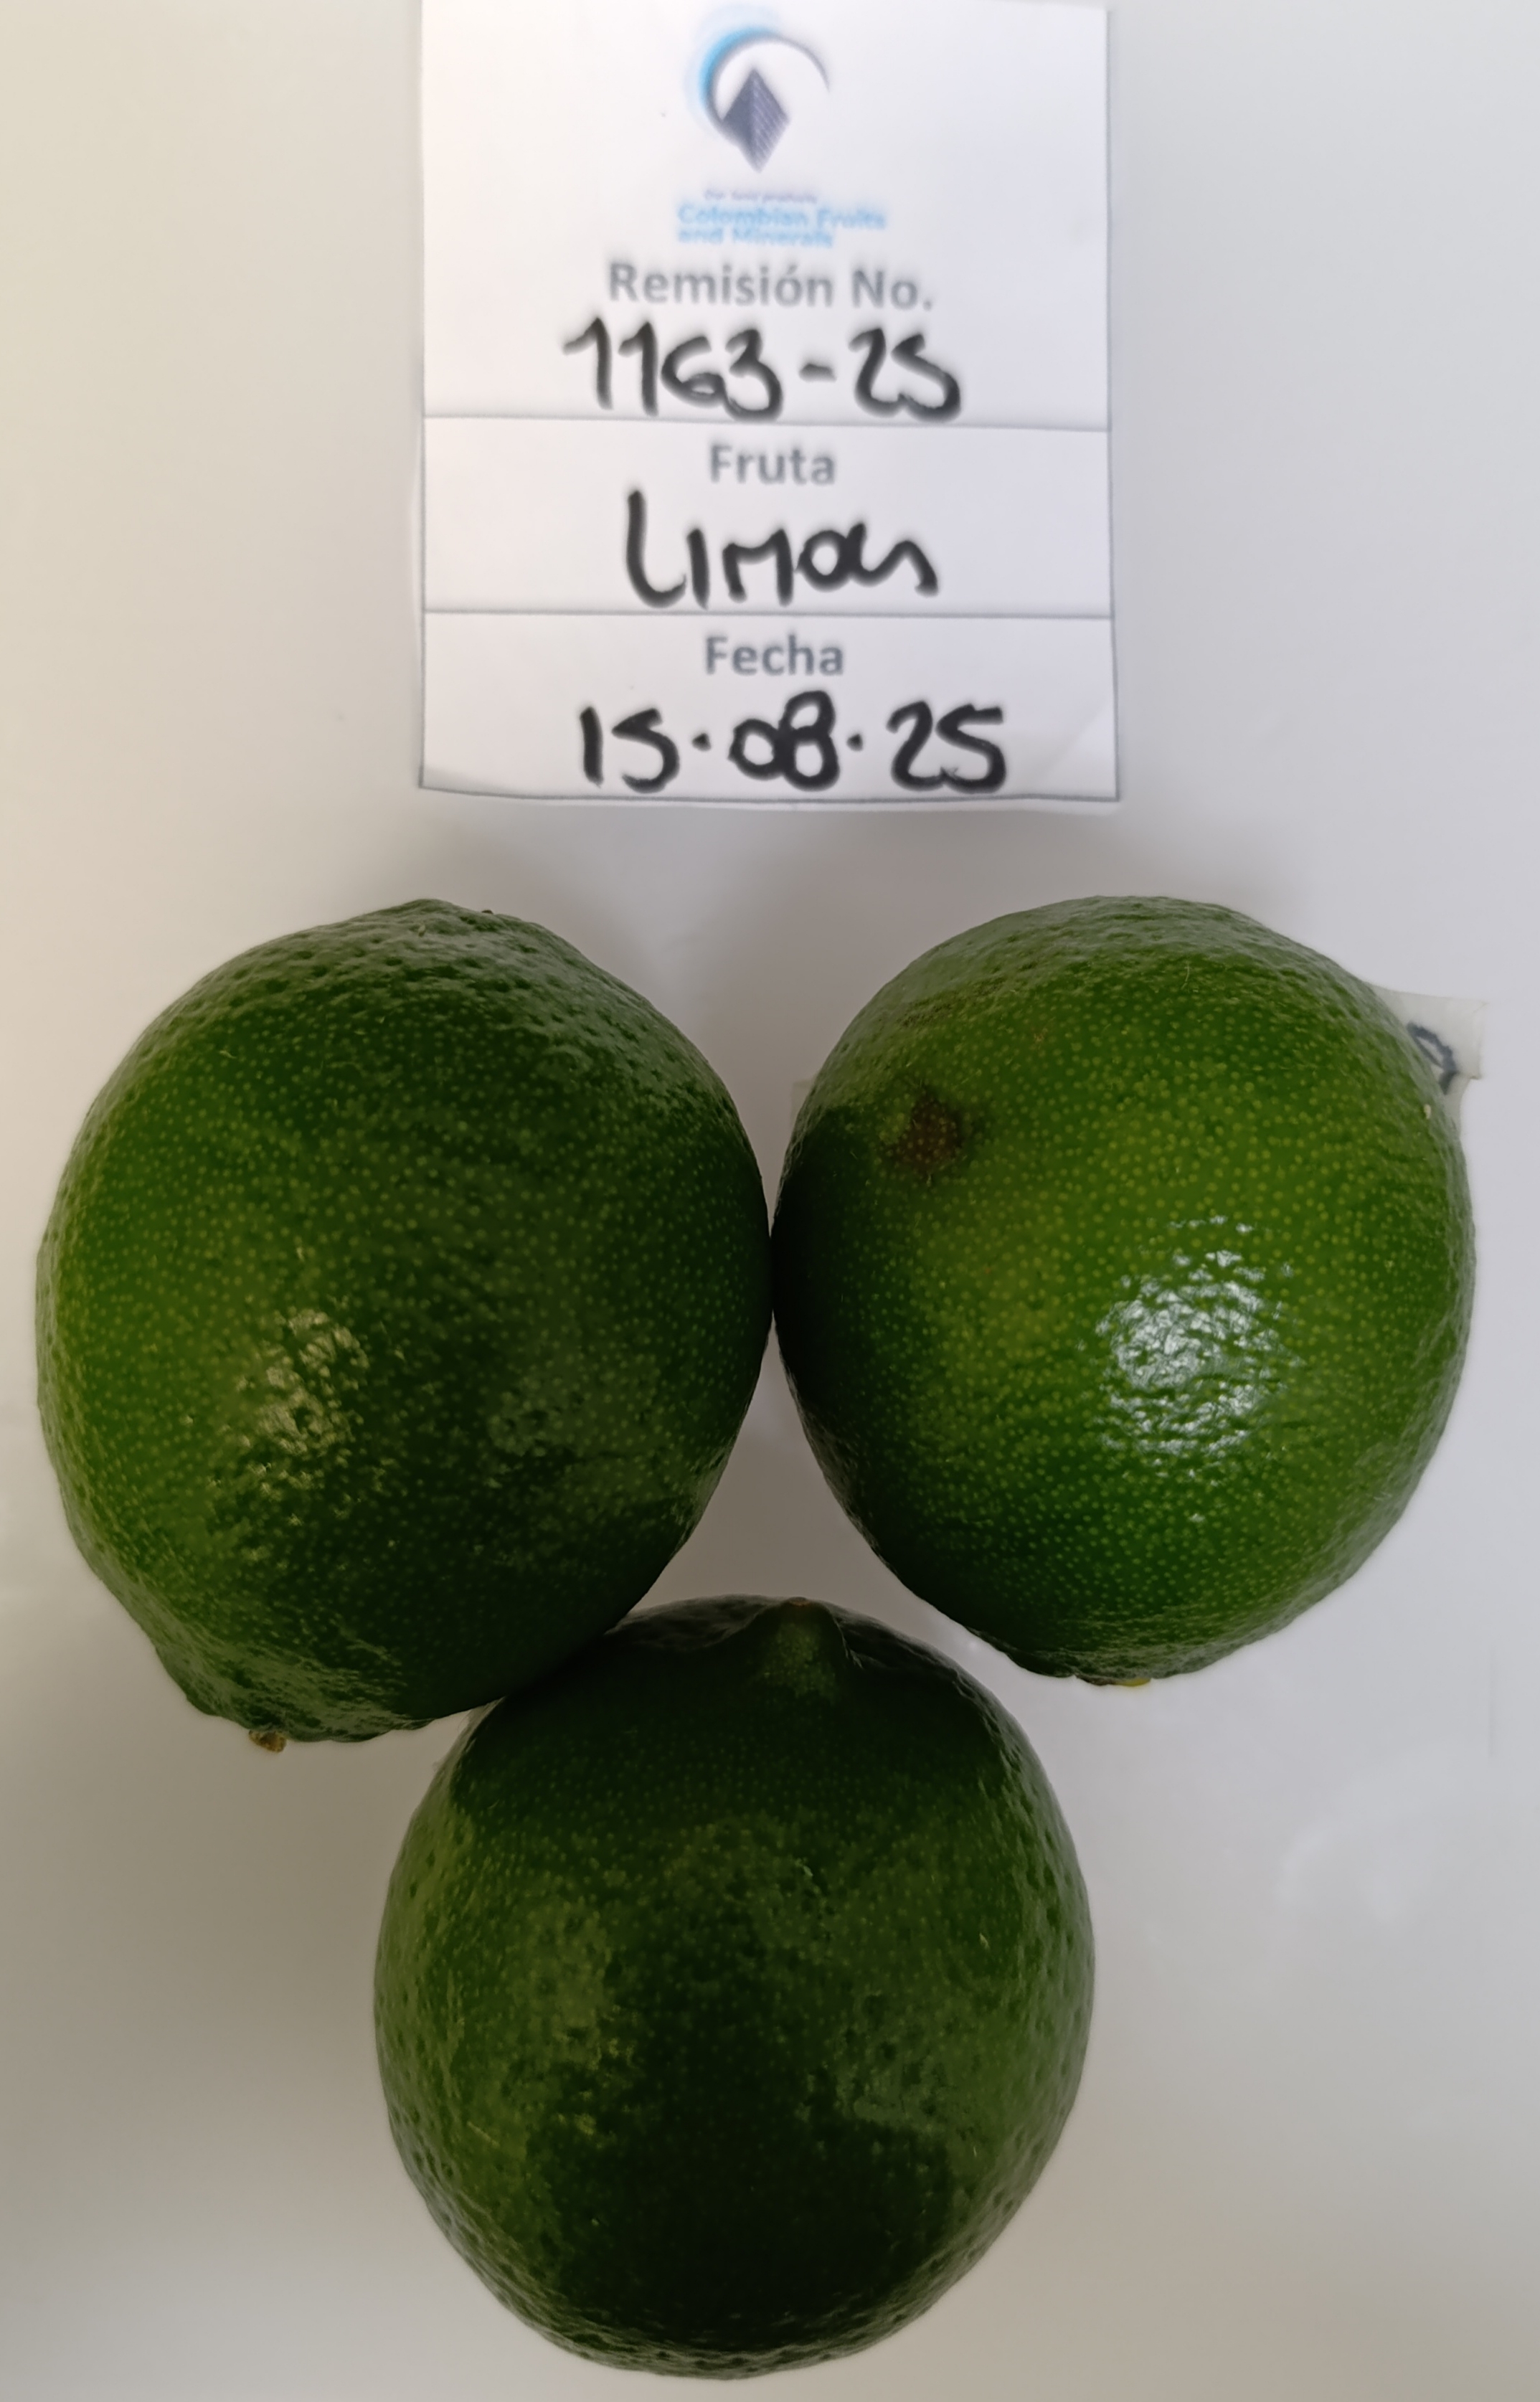 Our best products
Colombian Fruits
and Minerals
Remisión No.
1163-25
Fruta
LIMON
Fecha
15.08.25